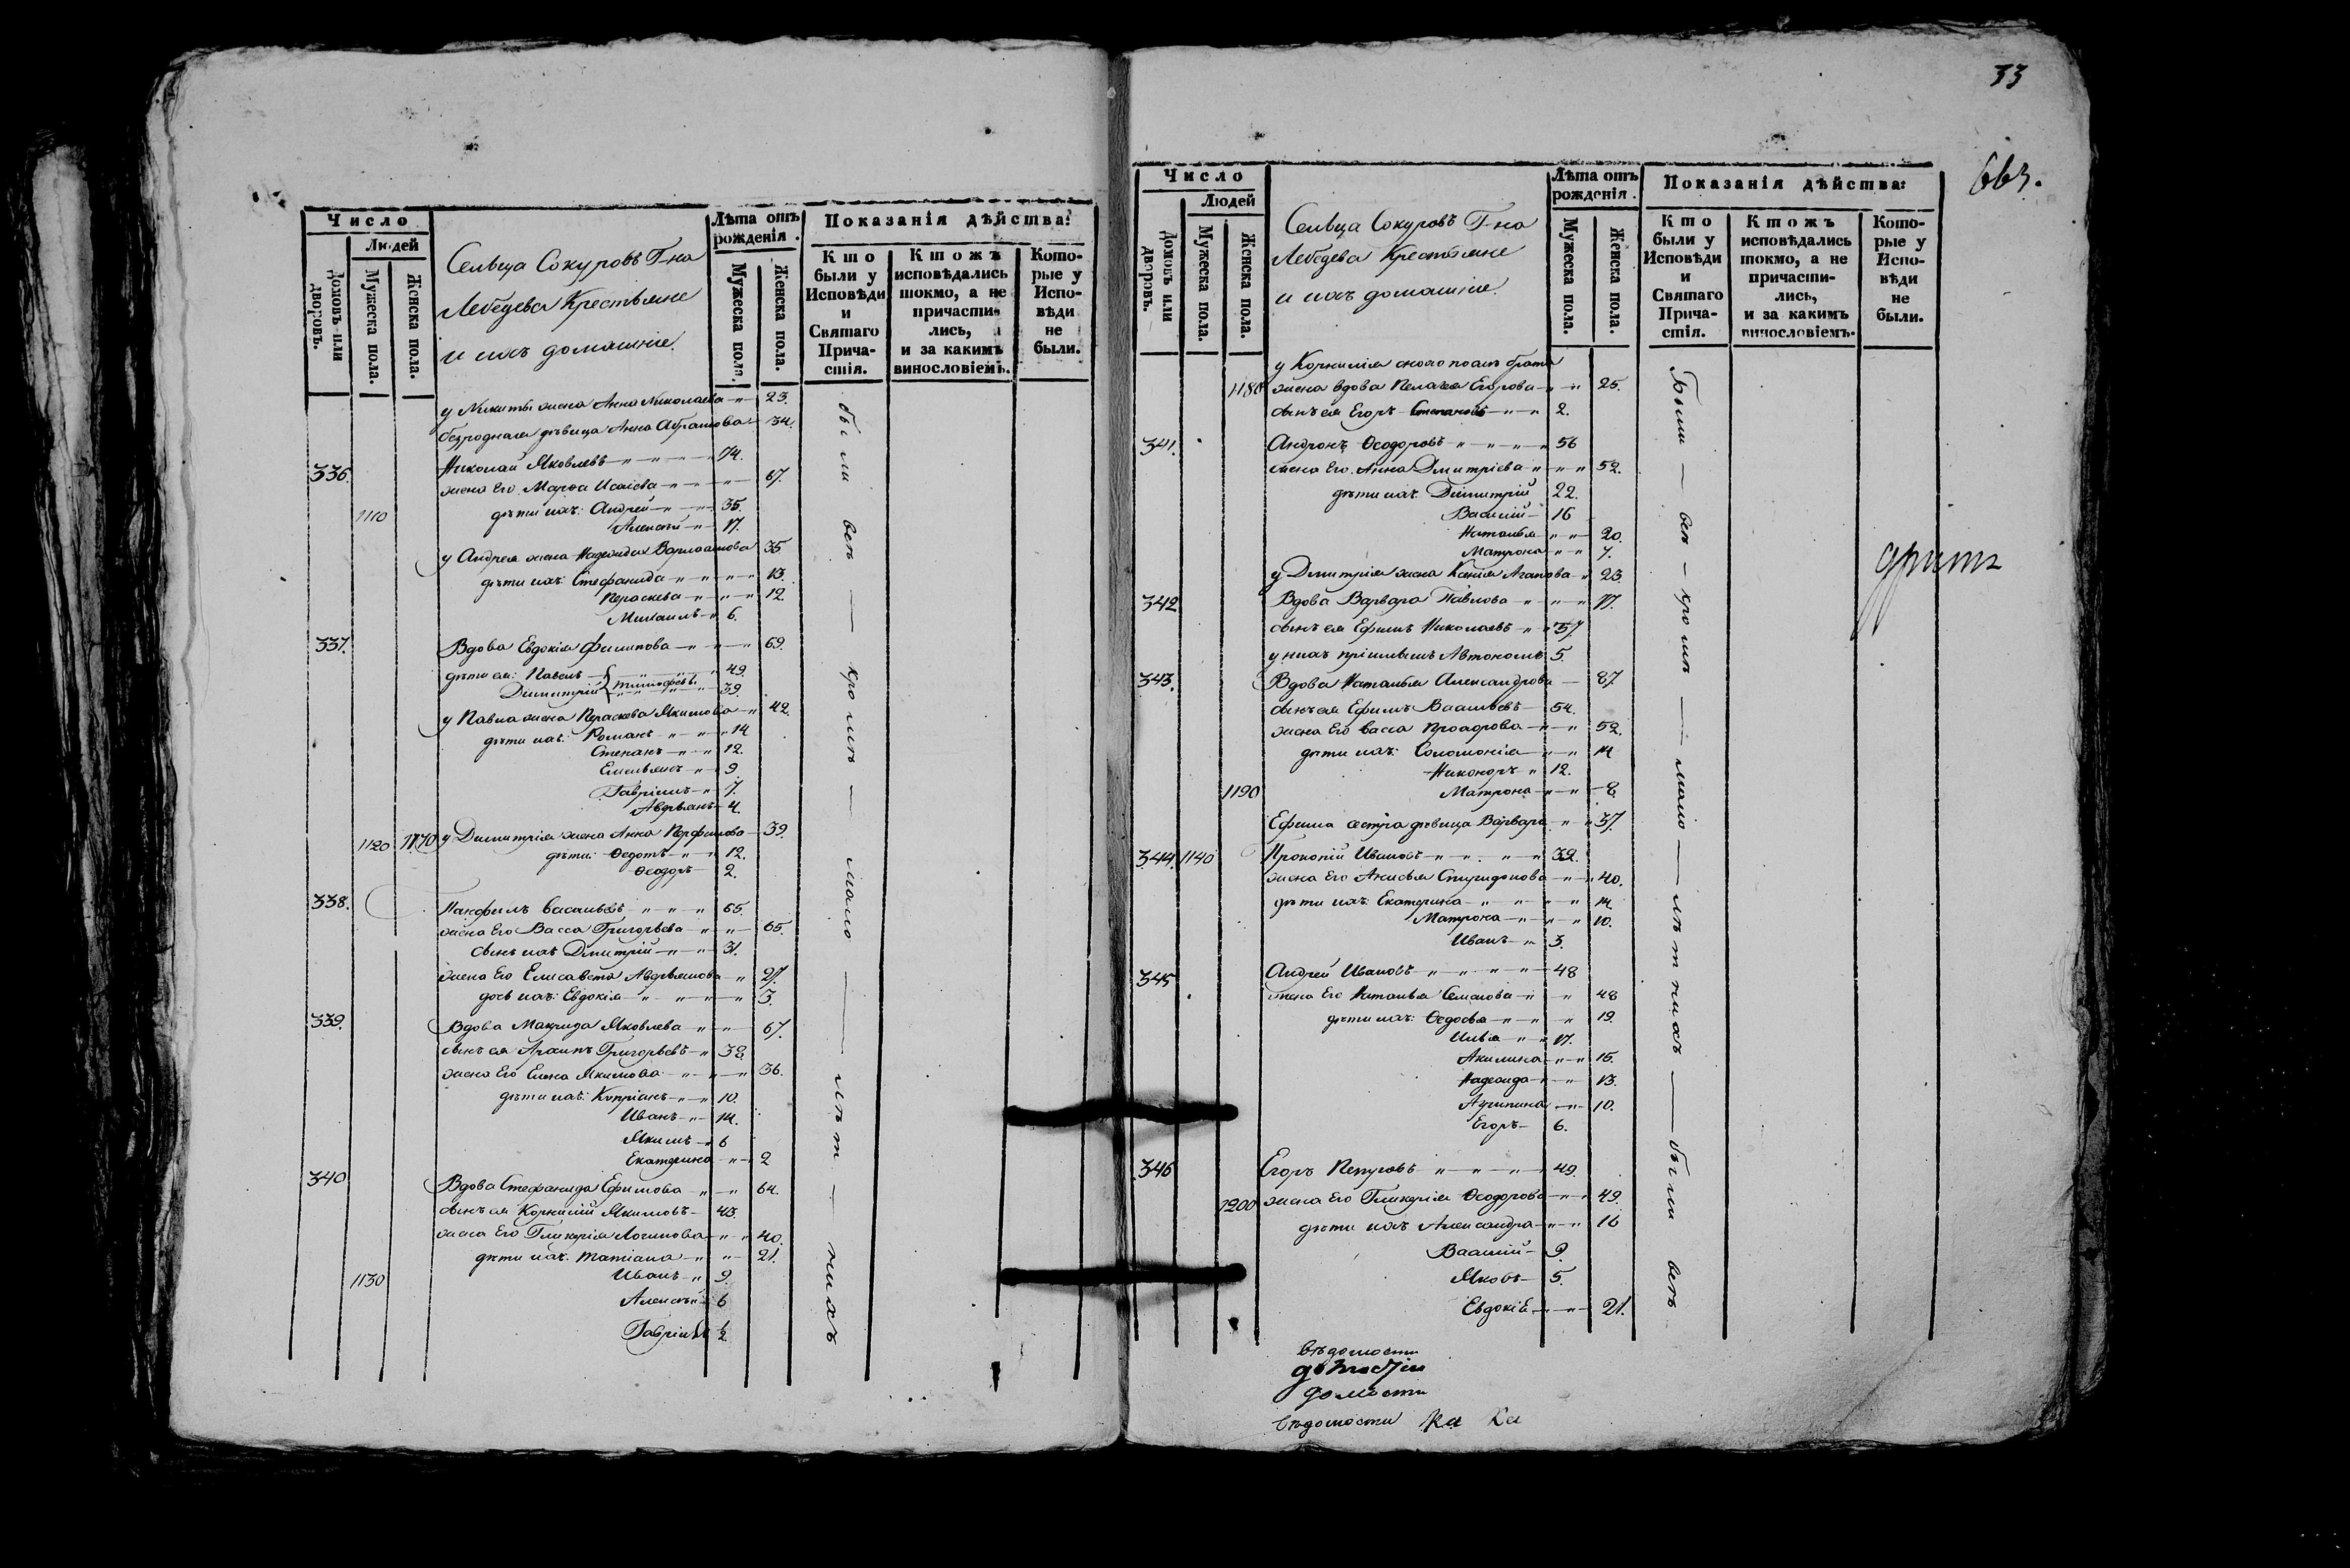 Число
Людей
Домовъ или дворовъ.
Мужеска пола.
Женска пола.
Сельца Сокуровъ Г-на
Лебедева Крестьяне
и ихъ домашніе.
Лѣта отъ рожденія.
Мужеска пола.
Женска пола.
Показанія дѣйства:
Кто были у Исповѣди и Святаго Причастія.
Ктожъ исповѣдались токмо, а не причастились, и за какимъ винословіемъ.
Которые у Исповѣди не были.
у Никиты жена Анна Николаева 23.
безродная дѣвица Анна Абрамова 34.
336. Николай Яковлевъ 74.
жена Его Марѳа Исаіева 67.
1110 дѣти ихъ: Андрей 35.
Алексѣй 17.
у Андрея жена Надежда Варлаамова 35
дѣти ихъ: Стефанида 13.
Пераскева 12
Михаилъ 6.
337. Вдова Евдокія Филипова 69.
дѣти ея: Павелъ Тимофеевы 49.
Димитрій 39.
у Павла жена Пераскева Якимова 42.
дѣти ихъ: Романъ 14
Степанъ 12.
Емельянъ 9
Гавріилъ 7.
Авдѣянъ 4.
1120 1170 у Димитрія жена Анна Перфилова 39.
дѣти: Ѳедотъ 12.
Ѳеодоръ 2.
338. Панфилъ Васильевъ 65.
жена Его Васса Григорьева 65.
сынъ ихъ Дмитрій 31.
жена Его Елисавета Авдѣянова 27.
дочь ихъ: Евдокія 3.
339. Вдова Макрида Яковлева 67.
сынъ ея Архипъ Григорьевъ 38.
жена Его Елена Якимова 36.
дѣти ихъ: Кипріянъ 10.
Иванъ 14.
Якимъ 6
Екатерина 2
340 Вдова Стефанида Ефимова 64.
сынъ ея Корнилій Якимовъ 43.
жена Его Гликерія Логинова 40.
дѣти ихъ: Татіана 21.
1130 Иванъ 9.
Алексѣй 6
Гавріилъ 1/2
были всѣ — кромѣ — мало — лѣт — нихъ
33
663.
Число
Людей
Домовъ или дворовъ.
Мужеска пола.
Женска пола.
Сельца Сокуровъ Г-на
Лебедева Крестьяне
и ихъ домашніе.
Лѣта отъ рожденія.
Мужеска пола.
Женска пола.
Показанія дѣйства:
Кто были у Исповѣди и Святаго Причастія.
Ктожъ исповѣдались токмо, а не причастились, и за какимъ винословіемъ.
Которые у Исповѣди не были.
у Корнилія брата
1180 жена вдова Пелагея Егорова 25.
сынъ ея Егоръ Степановъ 2.
341. Андронъ Ѳеодоровъ 56
жена Его Анна Дмитріева 52.
дѣти ихъ: Димитрій 22.
Василій 16
Наталья 20.
Матрона 7.
у Дмитрія жена Ксенія Агапова 23
342 Вдова Варвара Павлова 77.
сынъ ея Ефимъ Николаевъ 57.
у нихъ пріимышъ Автономъ 5.
343. Вдова Наталья Александрова 87.
сынъ ея Ефимъ Васильевъ 54.
жена Его Васса Прохорова 52.
дѣти ихъ: Соломонія 14
Никоноръ 12.
1190 Матрона 8.
Ефима сестра дѣвица Варвара 37.
344. 1140 Прокопій Ивановъ 39.
жена Его Анисья Спиридонова 40.
дѣти ихъ: Екатерина 14.
Матрона 10.
Иванъ 3.
345 Андрей Ивановъ 48
жена Его Наталья Семенова 48
дѣти ихъ: Ѳедосья 19.
Илья 17.
Акилина 15.
Надежда 13.
Агрипина 10.
Егоръ 6.
346 Егоръ Петровъ 49.
1200 жена Его Гликерія Ѳеодорова 49.
дѣти ихъ Александра 16
Василій 9.
Яковъ 5.
Евдокія 21.
Были — всѣ — кромѣ — мало — лѣтнихъ — были всѣ
вѣдомости
домости
вѣдомости ка ка